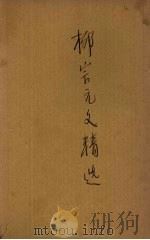 柳宗元文精选